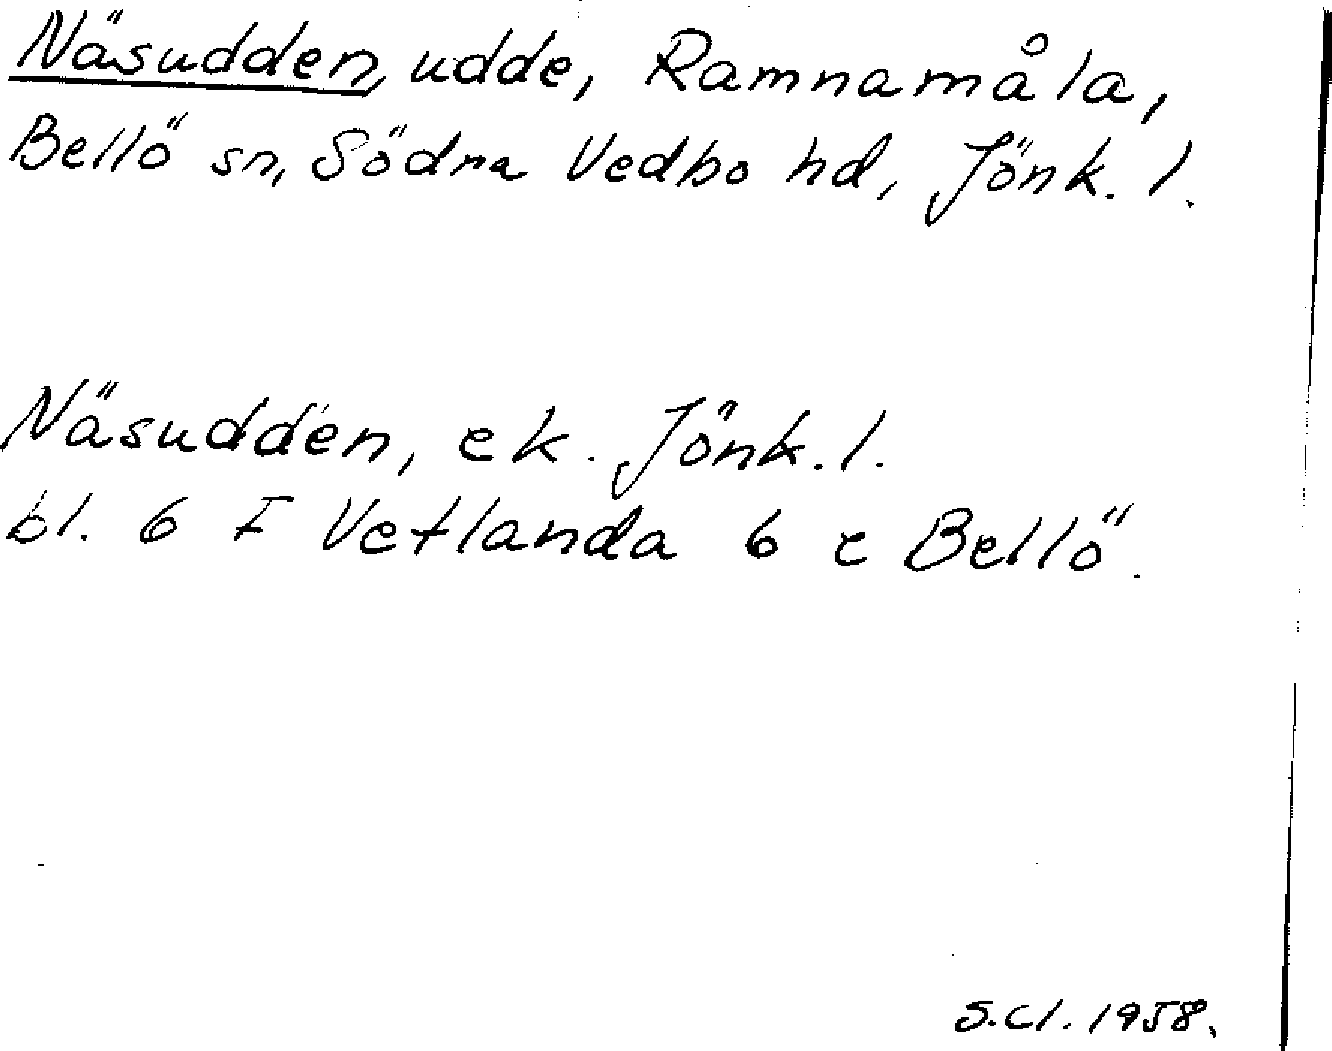 Näsudden, udde, Ramnamåla,
Bellö sn, Södra Vedbo hd, Jönk. l.
Näsudden, ek. Jönk. l.
bl. 6 F Vetlanda 6 e Bellö.
S.Cl. 1958.